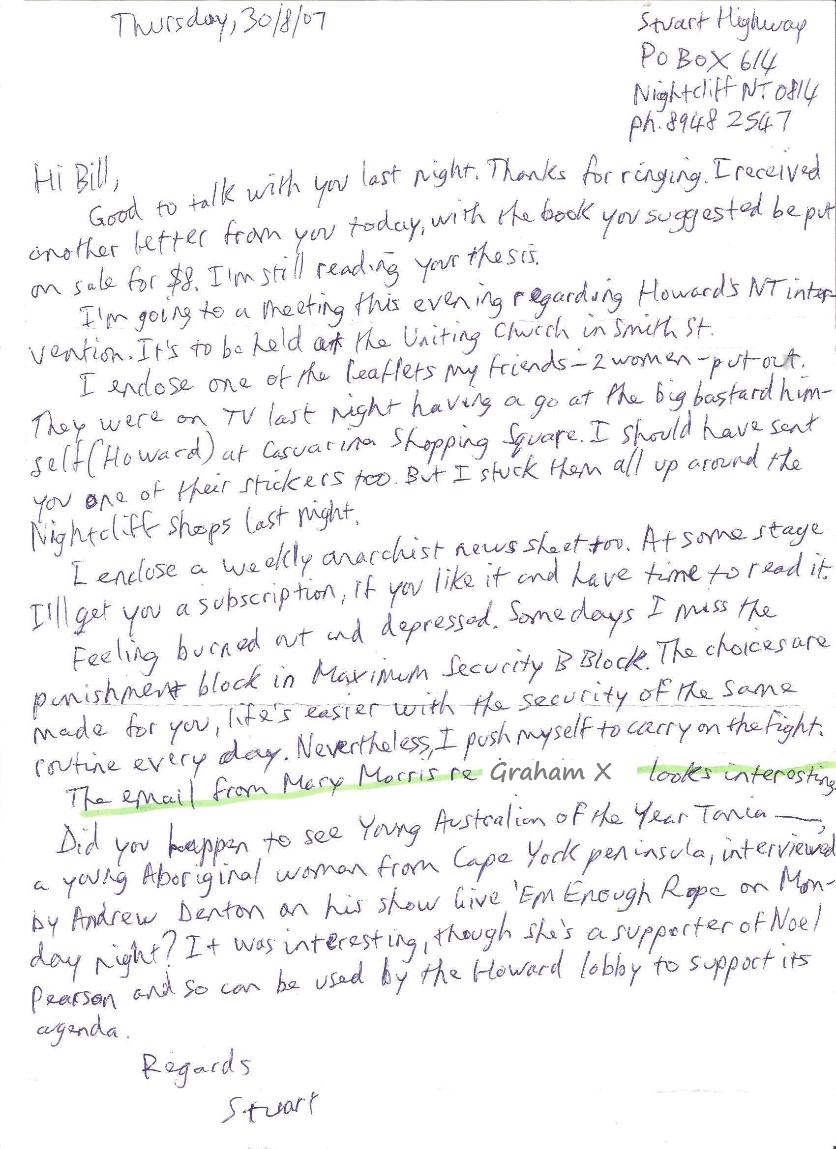 Thursday, 30/8/07
Stuart Highway
Po Box 614
Nightcliff NT 0814
ph. 8948 2547
Hi Bill,
Good to talk with you last night. Thanks for ringing. I received
another letter from you today, with the book you suggested be put
on sale for $8. I'm still reading your thesis.
I'm going to a meeting this evening regarding Howard's NT inter-
vention. It's to be held at the Uniting Church in Smith St.
I enclose one of the leaflets my friends – 2 women – put out.
They were on TV last night having a go at the big bastard him-
self (Howard) at Casuarina Shopping Square. I should have sent
you one of their stickers too. But I stuck them all up around the
Nightcliff shops last night.
I enclose a weekly anarchist news sheet too. At some stage
I'll get you a subscription, if you like it and have time to read it.
Feeling burned out and depressed. Some days I miss the
punishment block in Maximum Security B Block. The choices are
made for you, life's easier with the security of the same
routine every day. Nevertheless, I push myself to carry on the fight.
The email from Mary Morris re Graham X looks interesting.
Did you happen to see Young Australian of the Year Tania —,
a young Aboriginal woman from Cape York peninsula, interviewed
by Andrew Denton on his show Give 'Em Enough Rope on Mon-
day night? It was interesting, though she's a supporter of Noel
Pearson and so can be used by the Howard lobby to support its
agenda.
Regards
Stuart